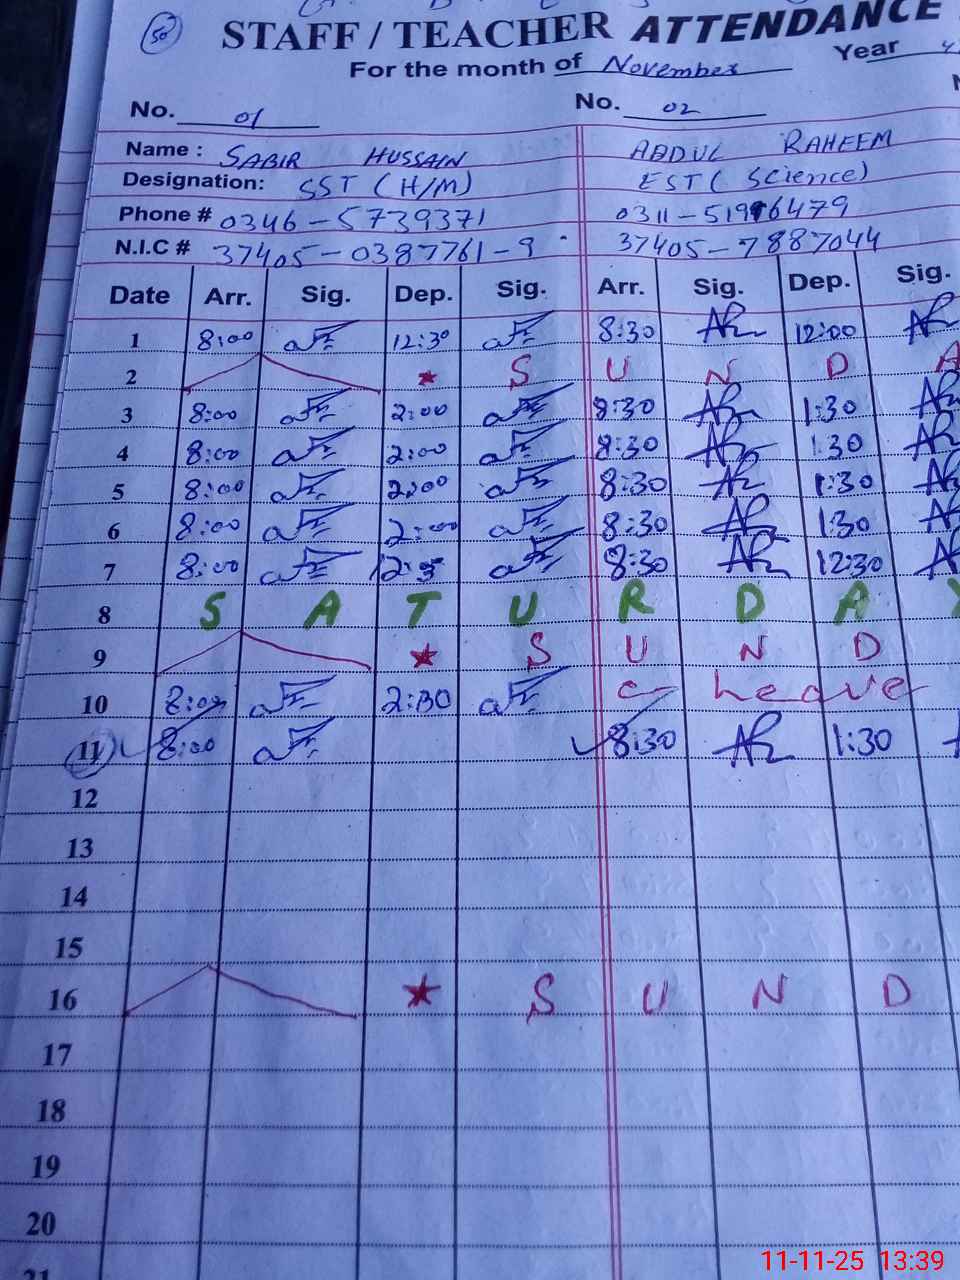 50
STAFF / TEACHER ATTENDANCE
For the month of November Year
No. 01 No. 02
Name : SABIR HUSSAIN ABDUL RAHEEM
Designation: SST (H/M) EST ( Science)
Phone # 0346-5739371 0311-5196479
N.I.C # 37405-0387761-9 37405-7887044
Date Arr. Sig. Dep. Sig. Arr. Sig. Dep. Sig.
1 8:00 12:30 8:30 12:00
2 ★ S U N D A
3 8:00 2:00 8:30 1:30
4 8:00 2:00 8:30 1:30
5 8:00 2:00 8:30 1:30
6 8:00 2:00 8:30 1:30
7 8:00 8:30 12:30
8 S A T U R D A Y
9 ★ S U N D
10 8:00 2:30 C Leave
11 8:00 8:30 1:30
12
13
14
15
16 ★ S U N D
17
18
19
20
21
11-11-25 13:39